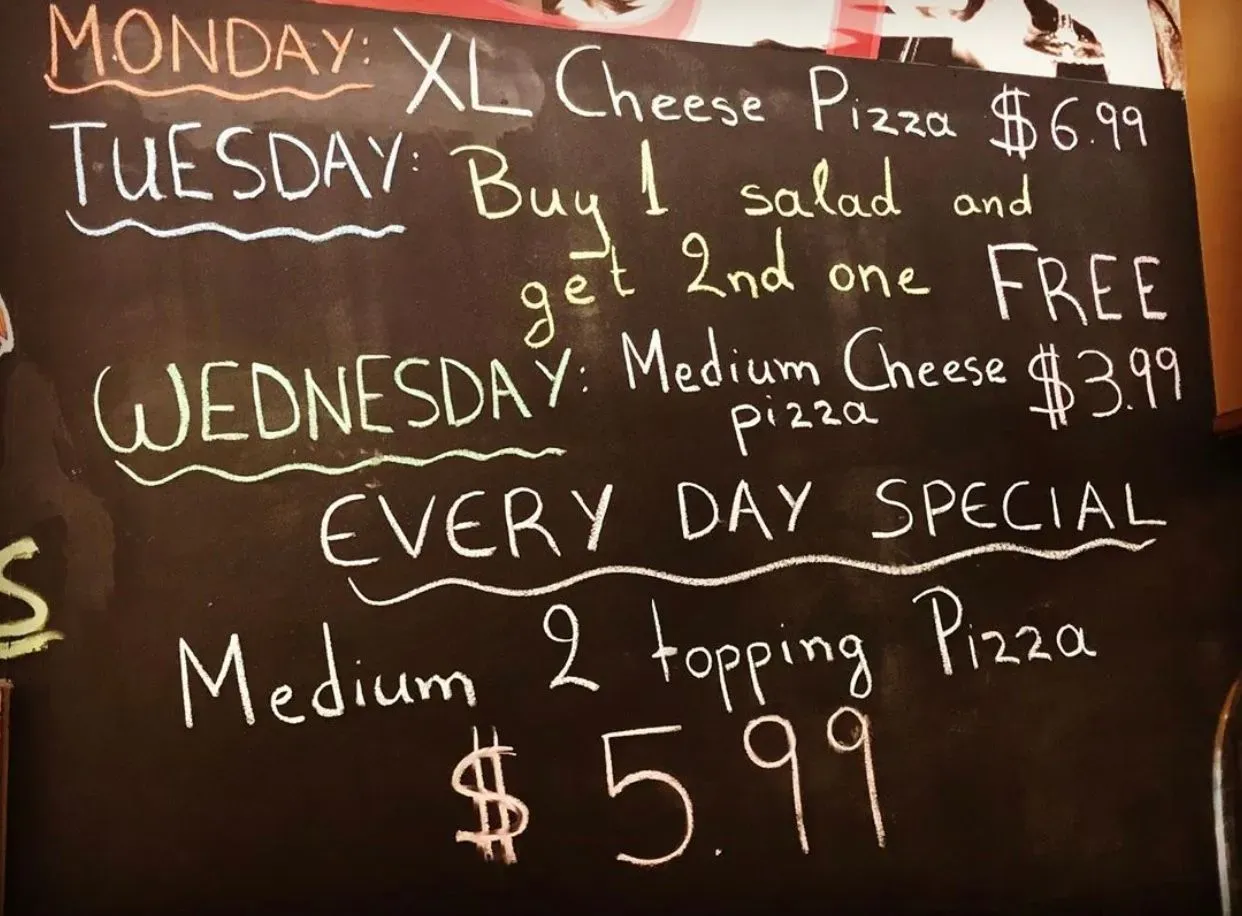 MONDAY: XL Cheese Pizza $6.99
TUESDAY: Buy 1 salad and
get 2nd one FREE
WEDNESDAY: Medium Cheese $3.99
pizza
EVERY DAY SPECIAL
S
Medium 2 topping Pizza
$5.99